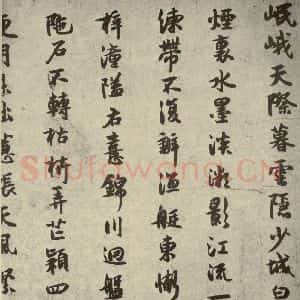 岷峨天際暮雲隱少城白
煙裏水墨淡影江流一
練帶不復辦漁艇東
梓潼隘右意錦川迴盤
石不轉枯待弄芒穎四
張天風
Shufawang.CN